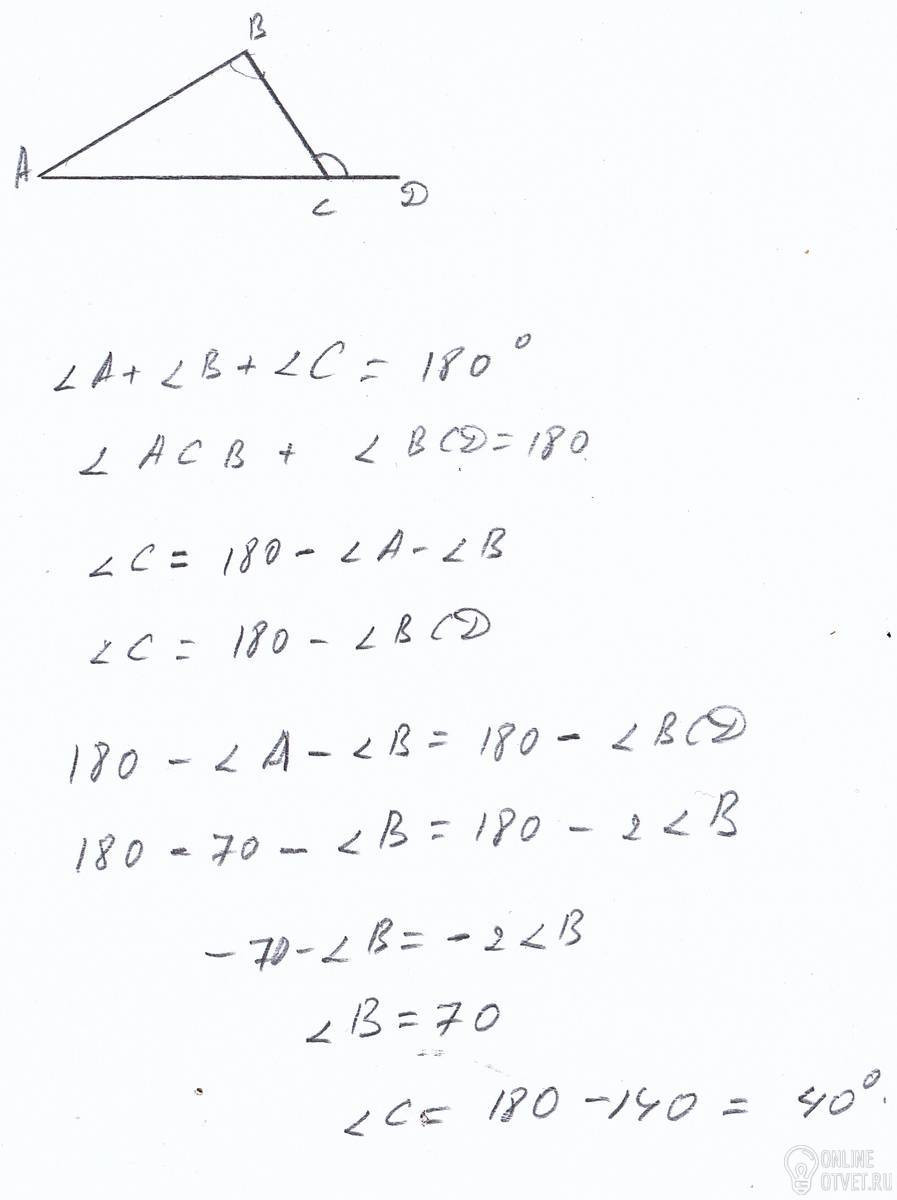 B
A
C
D
∠A + ∠B + ∠C = 180°
∠ACB + ∠BCD = 180
∠C = 180 - ∠A - ∠B
∠C = 180 - ∠BCD
180 - ∠A - ∠B = 180 - ∠BCD
180 - 70 - ∠B = 180 - 2∠B
-70 - ∠B = -2∠B
∠B = 70
∠C = 180 - 140 = 40°.
ONLINE
OTVET.RU